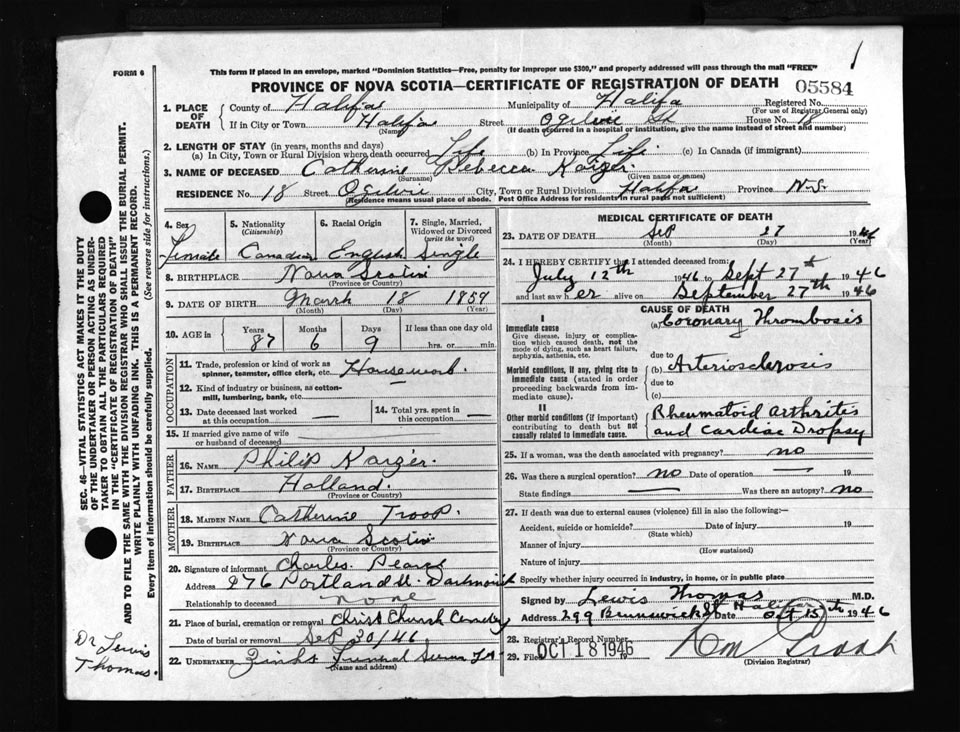 1
FORM 6
This form if placed in an envelope, marked "Dominion Statistics—Free, penalty for improper use $300," and properly addressed will pass through the mail "FREE"
PROVINCE OF NOVA SCOTIA—CERTIFICATE OF REGISTRATION OF DEATH 05584
1. PLACE OF DEATH County of Halifax Municipality of Halifa Registered No. (For use of Registrar General only)
If in City or Town Halifax (Name) Street Ogilvie St House No. 18
(If death occurred in a hospital or institution, give the name instead of street and number)
2. LENGTH OF STAY (in years, months and days)
(a) In City, Town or Rural Division where death occurred Life (b) In Province Life (c) In Canada (if immigrant)
3. NAME OF DECEASED Catherine Rebecca Kaizer
(Surname) (Given name or names)
RESIDENCE No. 18 Street Ogilvie City, Town or Rural Division Halifax Province N.S.
(Residence means usual place of abode. Post Office Address for residents in rural parts not sufficient)
4. Sex Female
5. Nationality (Citizenship) Canadian
6. Racial Origin English
7. Single, Married, Widowed or Divorced (write the word) Single
8. BIRTHPLACE Nova Scotia
(Province or Country)
9. DATE OF BIRTH March 18 1859
(Month) (Day) (Year)
10. AGE in Years 87 Months 6 Days 9 If less than one day old hrs. or min.
OCCUPATION
11. Trade, profession or kind of work as spinner, teamster, office clerk, etc. Housework.
12. Kind of industry or business, as cotton-mill, lumbering, bank, etc. —
13. Date deceased last worked at this occupation —
14. Total yrs. spent in this occupation —
15. If married give name of wife or husband of deceased —
FATHER
16. NAME Philip Kaizer.
17. BIRTHPLACE Holland.
(Province or Country)
MOTHER
18. MAIDEN NAME Catherine Troop.
19. BIRTHPLACE Nova Scotia
(Province or Country)
20. Signature of informant Charles Pearce
Address 276 Portland St. Dartmouth
Relationship to deceased none
21. Place of burial, cremation or removal Christ Church Cemetery
Date of burial or removal Sep 30/46
22. UNDERTAKER Funeral
(Name and address)
MEDICAL CERTIFICATE OF DEATH
23. DATE OF DEATH Sep 27 1946
(Month) (Day) (Year)
24. I HEREBY CERTIFY that I attended deceased from:
July 12th 1946 to Sept 27th 1946
and last saw her alive on September 27th 1946
CAUSE OF DEATH
I
Immediate cause
Give disease, injury or complication which caused death, not the mode of dying, such as heart failure, asphyxia, asthenia, etc.
(a) Coronary Thrombosis
due to
Morbid conditions, if any, giving rise to immediate cause (stated in order proceeding backwards from immediate cause).
(b) Arteriosclerosis
due to
(c)
II
Other morbid conditions (if important) contributing to death but not causally related to immediate cause.
Rheumatoid Arthritis
and Cardiac Dropsy
25. If a woman, was the death associated with pregnancy? no
26. Was there a surgical operation? no Date of operation — 19
State findings — Was there an autopsy? no
27. If death was due to external causes (violence) fill in also the following:—
Accident, suicide or homicide? Date of injury 19
(State which)
Manner of injury
(How sustained)
Nature of injury
Specify whether injury occurred in industry, in home, or in public place
Signed by Lewis Thomas M.D.
Address 299 Brunswick St Halifax Date Oct 15th 1946
28. Registrar's Record Number
29. Filed OCT 18 1946 19
(Division Registrar)
SEC. 46—VITAL STATISTICS ACT MAKES IT THE DUTY OF THE UNDERTAKER OR PERSON ACTING AS UNDERTAKER TO OBTAIN ALL THE PARTICULARS REQUIRED IN THE "CERTIFICATE OF REGISTRATION OF DEATH" AND TO FILE THE SAME WITH THE DIVISION REGISTRAR WHO SHALL ISSUE THE BURIAL PERMIT.
WRITE PLAINLY WITH UNFADING INK. THIS IS A PERMANENT RECORD.
Every item of information should be carefully supplied. (See reverse side for instructions.)
Dr Lewis
Thomas.